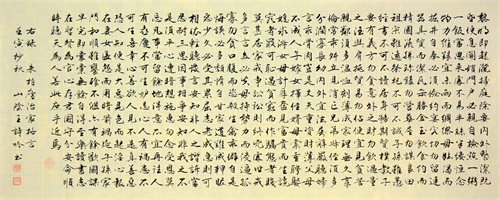 黎明即起灑掃庭除要內外整潔既
昏便息關鎖門戶必親自檢點一粥
一飯當思來處不易半絲半縷恒念
物力維艱宜未雨而綢繆毋臨渴而
掘井自奉必須儉約宴客切勿留連
器具質而潔瓦缶勝金玉飲食約而
精園蔬愈珍饈勿營華屋勿謀良
田三姑六婆實淫盜之媒婢美妾嬌非
閨房之福奴僕勿用俊美妻妾切忌艷妝
祖宗雖遠祭祀不可不誠子孫雖愚
經書不可不讀居身務期質樸教子
要有義方勿貪意外之財勿飲過量
之酒與肩挑貿易勿佔便宜見貧苦
親鄰須加溫恤刻薄成家理無久享
倫常乖舛立見消亡兄弟叔姪須
分多潤寡長幼內外宜法肅辭嚴聽
婦言乖骨肉豈是丈夫重資財薄父
母不成人子嫁女擇佳婿毋索重聘
娶媳求淑女勿計厚奩見富貴而生
諂容者最可恥遇貧窮而作驕態者賤
莫甚居家戒爭訟訟則終凶處世戒
多言言多必失勿恃勢力而凌逼孤
寡勿貪口腹而恣殺牲禽乖僻自是
悔誤必多頹惰自甘家道難成狎暱
惡少久必受其累屈志老成急則可
相依輕聽發言安知非人之譖愬當
忍耐三思因事相爭焉知非我之不
是須平心暗想施惠無念受恩莫忘
凡事當留餘地得意不宜再往人
有喜慶不可生妒忌心人有禍患不
可生喜幸心善欲人見不是真善惡
恐人知便是大惡見色而起淫心報
在妻女匿怨而用暗箭禍延子孫家
門和順雖饔飧不繼亦有餘歡國課
早完即囊橐無餘自得至樂讀書志
在聖賢為官心存君國守分安命順
時聽天為人若此庶乎近焉
右錄 朱柏廬治家格言
壬寅杪秋 山陰王詩吟書